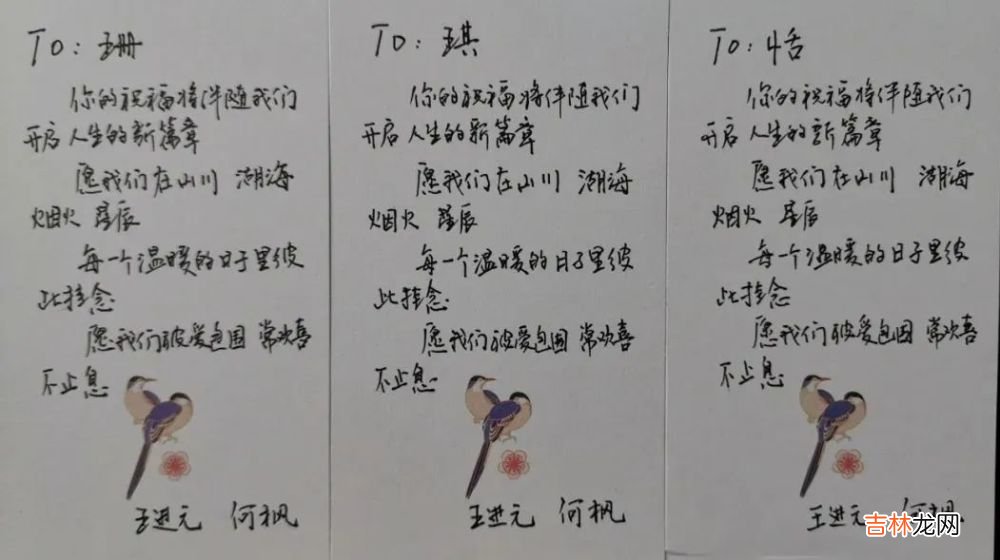 TO：珊
你的祝福将伴随我们
开启人生的新篇章
愿我们在山川 湖海
烟火 星辰
每一个温暖的日子里彼
此挂念
愿我们被爱包围 常欢喜
不止息
王进元 何枫
TO：琪
你的祝福将伴随我们
开启人生的新篇章
愿我们在山川 湖海
烟火 星辰
每一个温暖的日子里彼
此挂念
愿我们被爱包围 常欢喜
不止息
王进元 何枫
TO：恬
你的祝福将伴随我们
开启人生的新篇章
愿我们在山川 湖海
烟火 星辰
每一个温暖的日子里彼
此挂念
愿我们被爱包围 常欢喜
不止息
王进元 何枫
吉林龙网